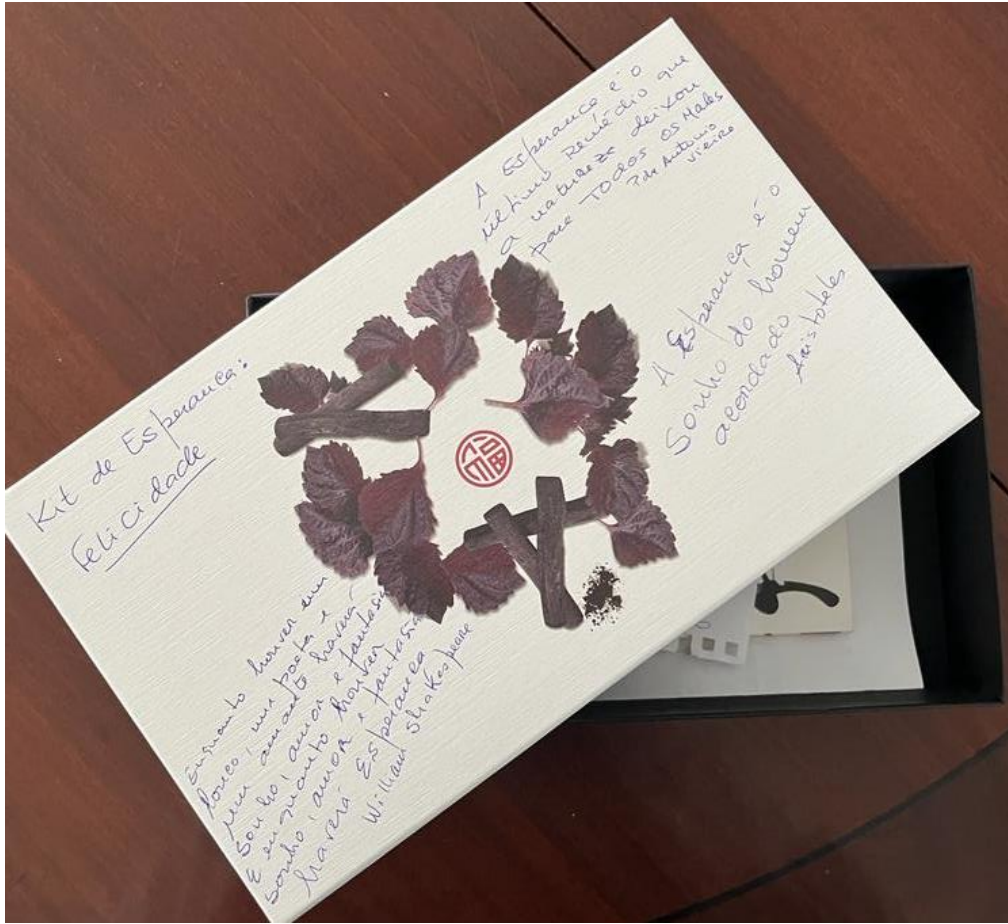 Kit de Esperança:
Felicidade
A Esperança é o
último Remédio que
a natureza deixou
para TODOS OS Males
Pde Antonio
Vieira
A Esperança é o
Sonho do homem
acordado
Aristoteles
Enquanto houver um
louco, um poeta e
um amante haverá
sonho, amor e fantasia
E enquanto houver
sonho, amor e fantasia
haverá Esperança
William Shakespeare
福